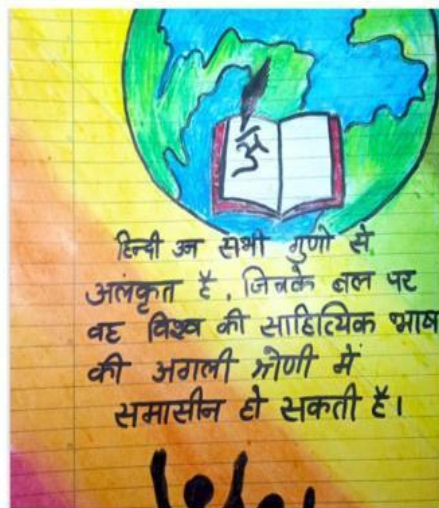 अ
हिन्दी उन सभी गुणो से
अलंकृत है, जिनके बल पर
वह विश्व की साहित्यिक भाष
की अगली श्रेणी में
समासीन हो सकती है।